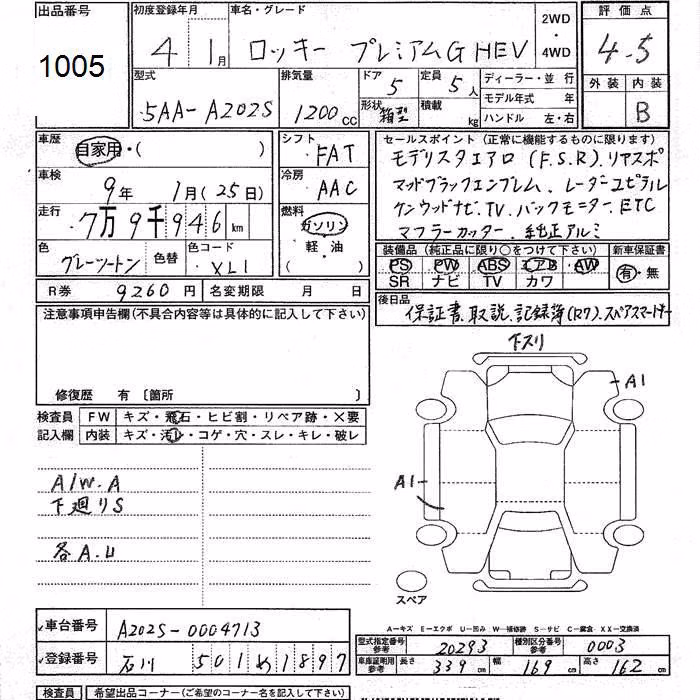 出品番号 1005
初度登録年月 4 1月
車名・グレード ロッキー プレミアムG HEV
2WD・4WD
評価点 4.5
型式 5AA-A202S
排気量 1200cc
ドア 5
定員 5人
形状 箱型
積載 kg
ディーラー・並 行
モデル年式 年
ハンドル 左・右
外装 内装 B
車歴 自家用・( )
シフト FAT
車検 9年 1月(25日)
冷房 AAC
走行 7万9千946km
燃料 ガソリン・軽・油( )
色 グレーツートン
色替
色コード XL1
R券 9260円
名変期限 月 日
セールスポイント(正常に機能するものに限ります)
モデリスタエアロ(F.S.R).リアスポ
マッドブラックエンブレム、レーダーユピテル
ケンウッドナビ.TV.バックモニター.ETC
マフラーカッター.純正アルミ
装備品(純正品に限り○をつけて下さい)
PS PW ABS エアB AW
SR ナビ TV カワ
新車保証書 有・無
後日品 保証書.取説.記録簿(R7).スペアスマートキー
注意事項申告欄(不具合内容等は具体的に記入して下さい)
修復歴 有〔箇所 〕
検査員記入欄
FW キズ・飛石・ヒビ割・リペア跡・×要
内装 キズ・汚レ・コゲ・穴・スレ・キレ・破レ
A/W.A
下廻りS
各A.U
下スリ
A1
A1
スペア
A-キズ E-エクボ U-凹み W-補修跡 S-サビ C-腐食 XX-交換済
車台番号 A202S-0004713
登録番号 石川 501 め1897
型式指定番号 参考 20293
種別区分番号 参考 0003
車庫証明用 参考 長さ 339cm 幅 169cm 高さ 162cm
検査員 希望出品コーナー(ご希望のコーナー名を記入下さい)